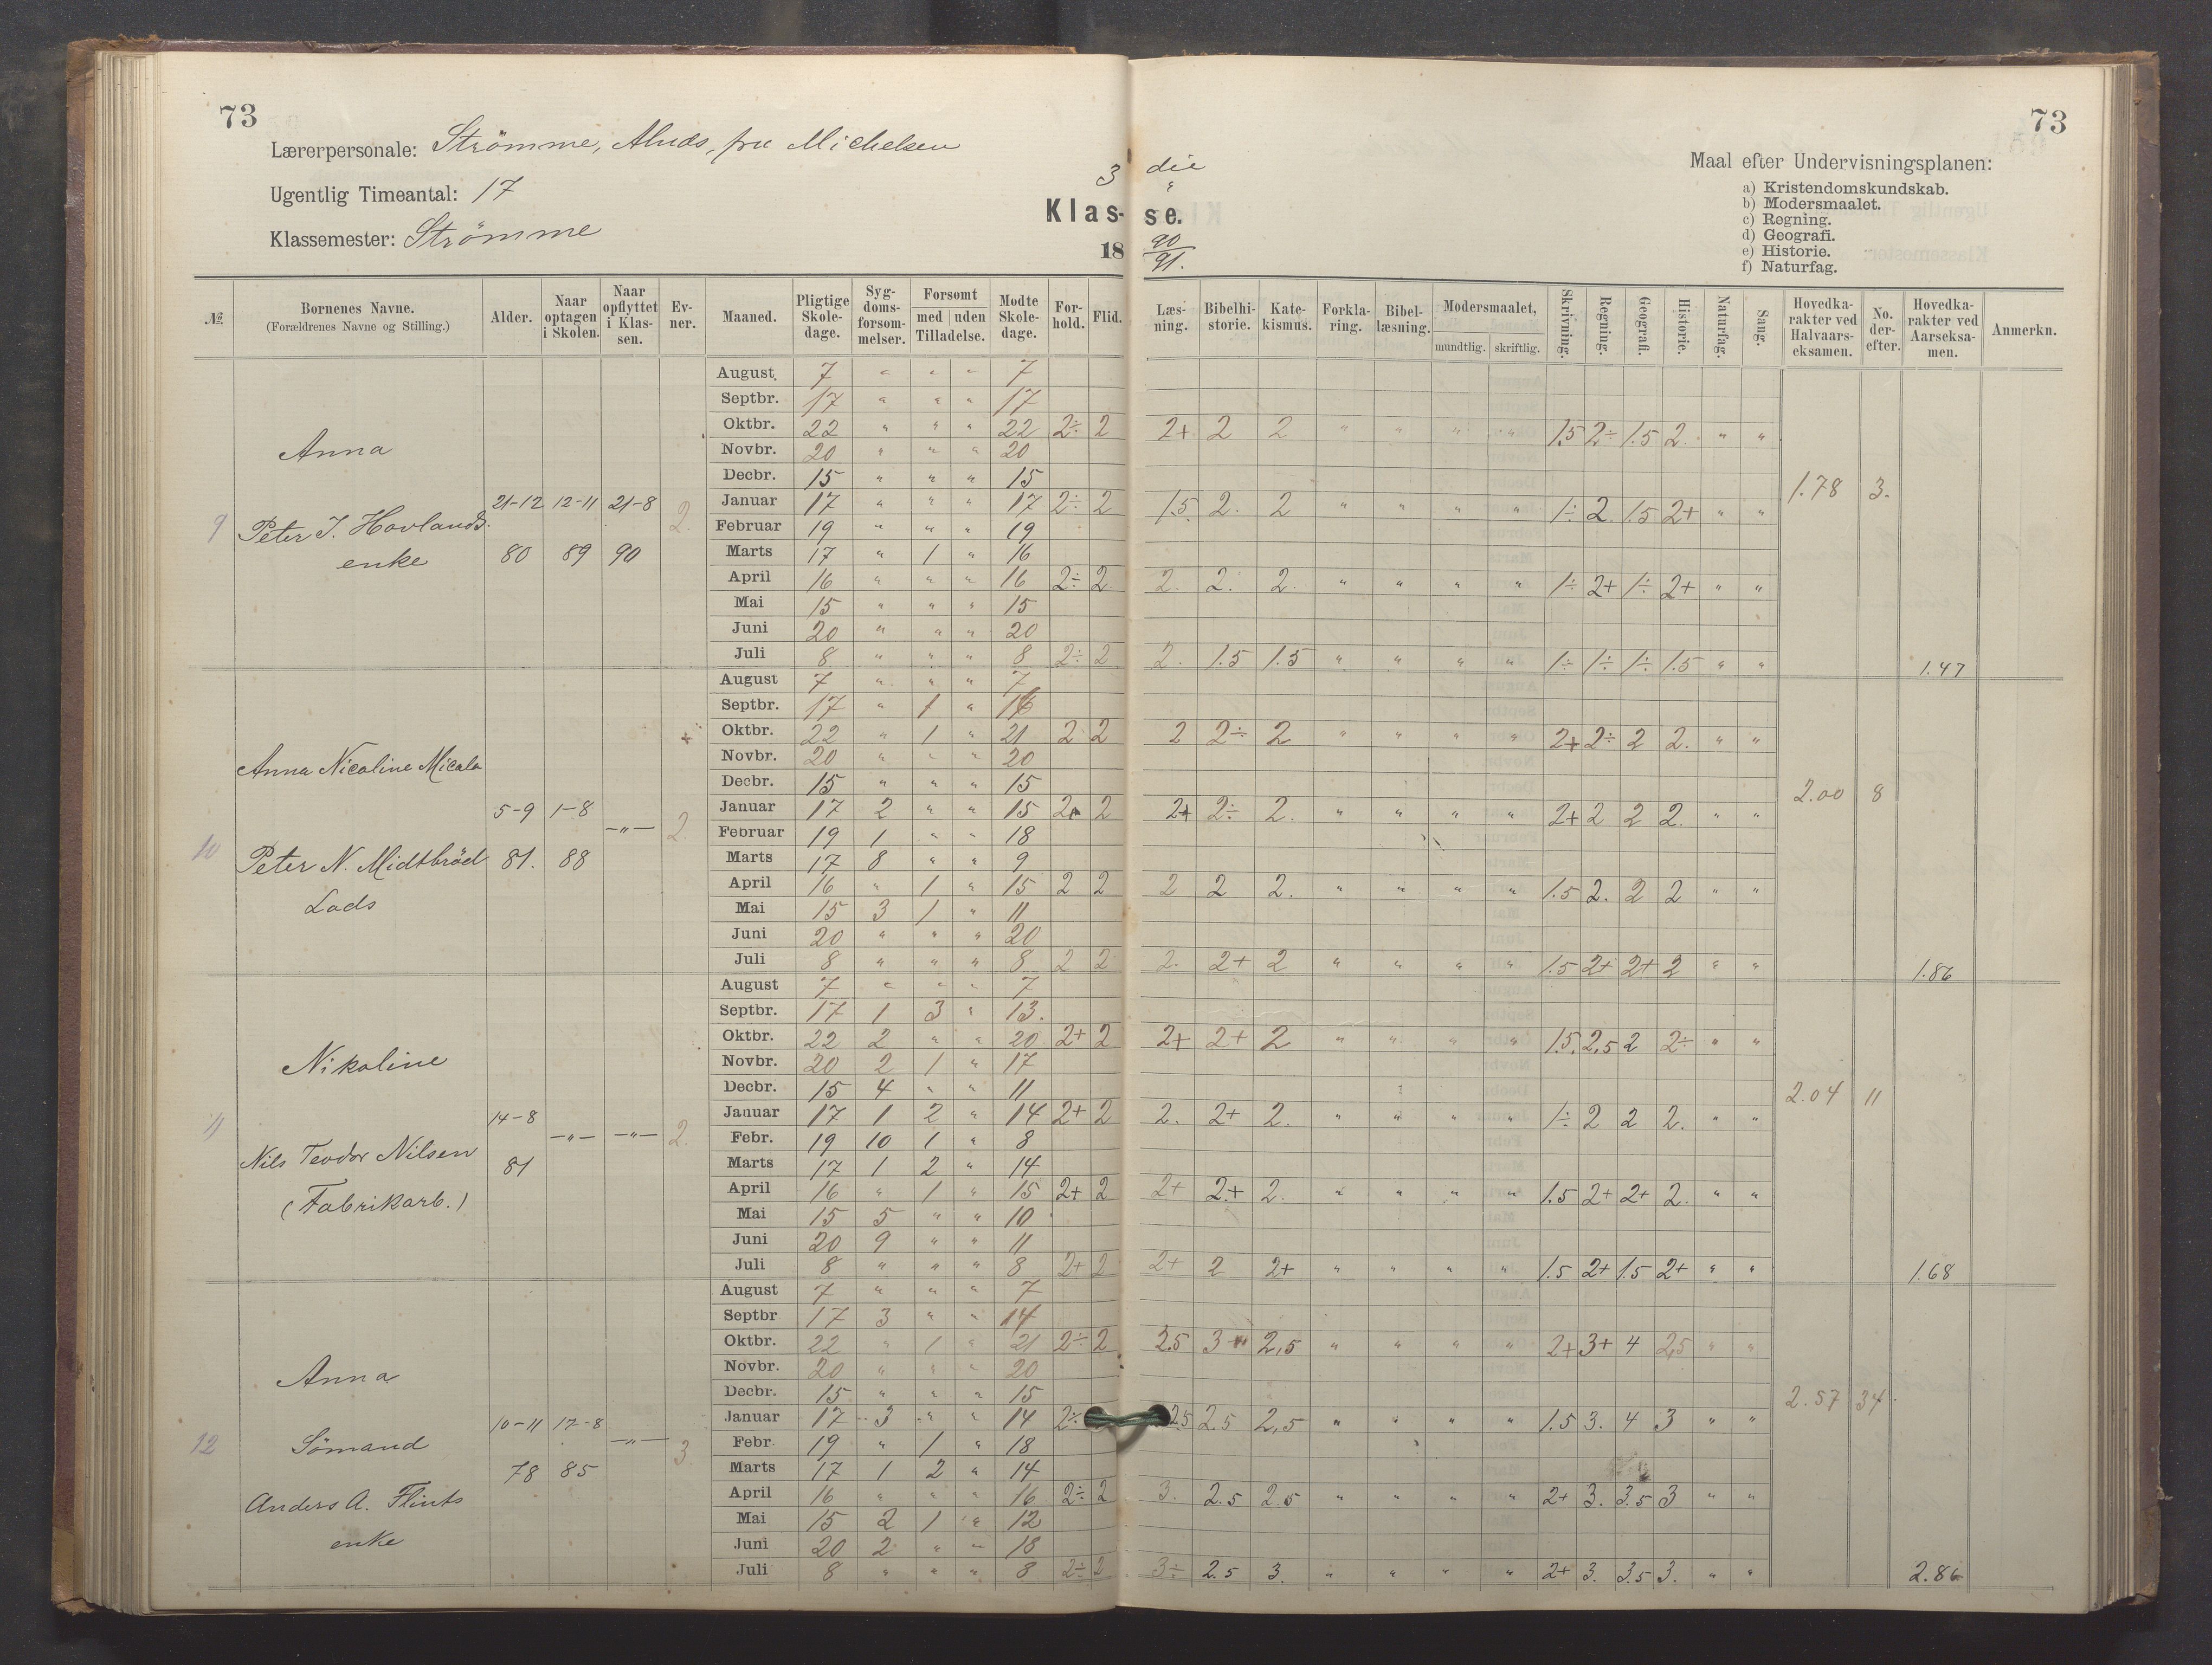 73
73
Lærerpersonale: Strömme, Aluds, fru Michelsen
Ugentlig Timeantal: 17
Klassemester: Strömme
3 die
Klas- se.
18 90/91.
Maal efter Undervisningsplanen:
a) Kristendomskundskab.
b) Modersmaalet.
c) Regning.
d) Geografi.
e) Historie.
f) Naturfag.
№ | Børnenes Navne. (Forældrenes Navne og Stilling.) | Alder. | Naar optagen i Skolen. | Naar opflyttet i Klassen. | Evner. | Maaned. | Pligtige Skoledage. | Sygdomsforsømmelser. | Forsømt med uden Tilladelse. | Mødte Skoledage. | Forhold. | Flid. | Læsning. | Bibelhistorie. | Katekismus. | Forklaring. | Bibellæsning. | Modersmaalet, mundtlig. skriftlig. | Skrivning. | Regning. | Geografi. | Historie. | Naturfag. | Sang. | Hovedkarakter ved Halvaarseksamen. | No. derefter. | Hovedkarakter ved Aarseksamen. | Anmerkn.
9 Anna
Peter J. Hovlands enke
21-12 80 | 12-11 89 | 21-8 90 | 2.
August 7 " " " 7
Septbr. 17 " " " 17
Oktbr. 22 " " " 22 2÷ 2 2+ 2 2 " " " " 1.5 2÷ 1.5 2. " "
Novbr. 20 " " " 20
Decbr. 15 " " " 15
Januar 17 " " " 17 2÷ 2 1.5 2. 2 " " " " 1÷ 2. 1.5 2+ " "
Februar 19 " " " 19
Marts 17 " 1 " 16
April 16 " " " 16 2÷ 2. 2. 2. 2. " " " " 1÷ 2+ 1÷ 2+ " "
Mai 15 " " " 15
Juni 20 " " " 20
Juli 8 " " " 8 2÷ 2 2. 1.5 1.5 " " " " 1÷ 1÷ 1÷ 1.5 " "
1.78 3. 1.47
10 Anna Nicoline Micala
Peter N. Midtbröd
Lods
5-9 81. | 1-8 88 | -"- | 2.
August 7 " " " 7
Septbr. 17 " 1 " 16
Oktbr. 22 " 1 " 21 2 2 2 2÷ 2 " " " " 2+ 2÷ 2 2. " "
Novbr. 20 " " " 20
Decbr. 15 " " " 15
Januar 17 2 " " 15 2 2 2+ 2÷ 2. " " " " 2+ 2 2 2. " "
Februar 19 1 " " 18
Marts 17 8 " " 9
April 16 " 1 " 15 2 2 2 2 2. " " " " 1.5 2. 2 2 " "
Mai 15 3 1 " 11
Juni 20 " " " 20
Juli 8 " " " 8 2 2 2. 2+ 2 " " " " 1.5 2+ 2+ 2 " "
2.00 8 1.86
11 Nikoline
Nils Teodor Nilsen
(Fabrikarb.)
14-8 81 | -"- | -"- | 2.
August 7 " " " 7
Septbr. 17 1 3 " 13.
Oktbr. 22 2 " " 20 2+ 2 2+ 2+ 2 " " " " 1.5. 2,5 2 2÷ " "
Novbr. 20 2 1 " 17
Decbr. 15 4 " " 11
Januar 17 1 2 " 14 2+ 2 2. 2+ 2. " " " " 1÷ 2 2 2. " "
Febr. 19 10 1 " 8
Marts 17 1 2 " 14
April 16 " 1 " 15 2+ 2 2+ 2+ 2. " " " " 1.5 2+ 2+ 2. " "
Mai 15 5 " " 10
Juni 20 9 " " 11
Juli 8 " " " 8 2+ 2 2+ 2 2+ " " " " 1.5 2+ 1.5 2+ " "
2.04 11 1.68
12 Anna
Sömand
Anders A. Flints
enke
10-11 78 | 12-8 85 | -"- | 3
August 7 " " " 7
Septbr 17 3 " " 14
Oktbr. 22 " 1 " 21 2÷ 2 2.5 3 2,5 " " " " 2+ 3+ 4 2,5 " "
Novbr. 20 " " " 20
Decbr. 15 " " " 15
Januar 17 3 " " 14 2÷ 2.5 2.5 2,5 " " " " 1.5 3. 4 3 " "
Febr. 19 " 1 " 18
Marts 17 1 2 " 14
April 16 " " " 16 2÷ 2 3. 2.5 2.5 " " " " 2+ 3. 3.5 3 " "
Mai 15 2 1 " 12
Juni 20 2 " " 18
Juli 8 " " " 8 2÷ 2 3÷ 2.5 3. " " " " 2+ 3. 3.5 3. " "
2.57 34. 2.86